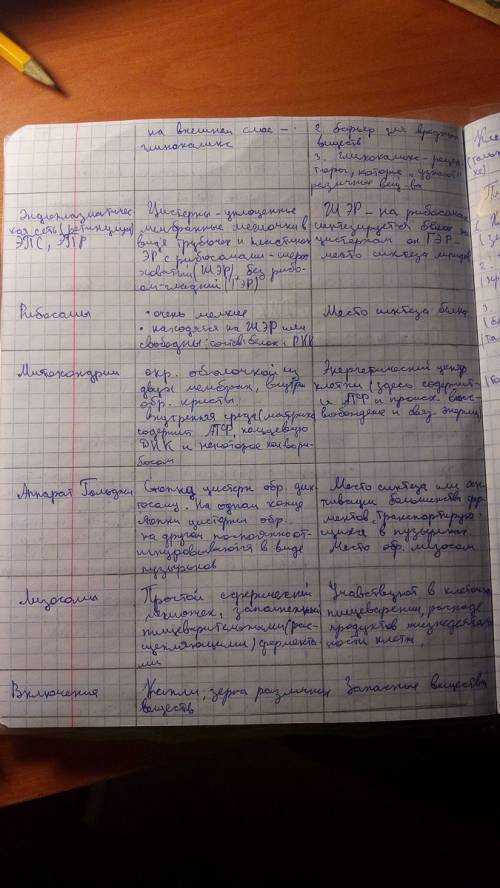 на внешнем слое –
гликокаликс
2. барьер для вредных
веществ
3. Гликокаликс – рецеп
торы, которые "узнают"
различные вещ-ва
Эндоплазматичес
кая сеть (ретикулум)
ЭПС, ЭПР
Цистерны – уплощенные
мембранные мешочки в
виде трубочек и пластинок
ЭР с рибосомами – шеро
ховатый (ШЭР), без рибо
сом – гладкий (ГЭР)
ШЭР – на рибосомах
синтезируется белок на
цистернах он ГЭР –
место синтеза липидов
Рибосомы
• очень мелкие
• находятся на ШЭР или
свободны; состав: белок и РНК
Место синтеза белка
Митохондрии
окр. оболочкой из
двух мембран, внутр
обр. кристы.
внутренняя среда (матрикс)
содержит АТФ, кольцевую
ДНК и некоторое кол-во ри-
босом
Энергетический центр
клетки (здесь содержит
ся АТФ и происх. выс-
вобождение и связ. энергии)
Аппарат Гольджи
Стопка цистерн обр. дик-
тосому. На одном конце
стопки цистерны обр.
на другом постоянно от-
шнуровываются в виде
пузырьков
Место синтеза или ак
тивации большинства фер
ментов, транспортирую
щихся в пузырьках.
Место обр. лизосом
Лизосомы
Простой сферический
мешочек, заполненный
пищеварительными (рас-
щепляющими) фермента
ми
Учавствуют в клеточн
пищеварении, распаде
продуктов жизнедеятель
ности клетки.
Включения
Капли, зерна различных
веществ
Запасные вещества